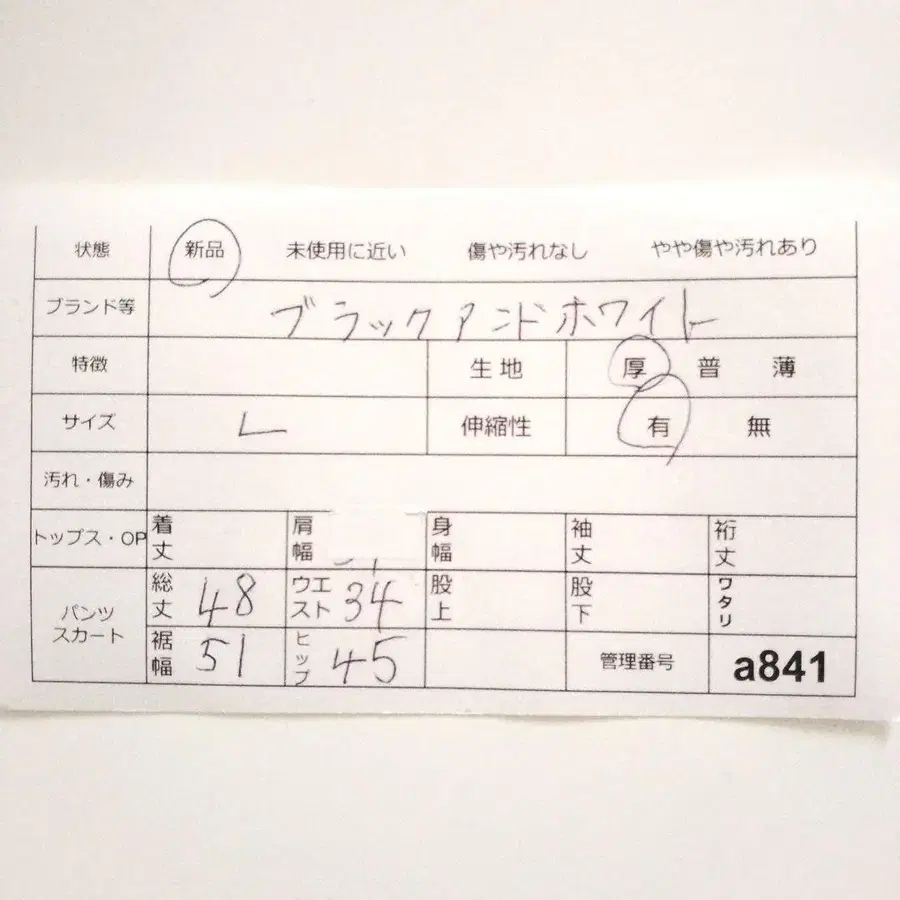 状態 新品 未使用に近い 傷や汚れなし やや傷や汚れあり
ブランド等 ブラックアンドホワイト
特徴 生地 厚 普 薄
サイズ L 伸縮性 有 無
汚れ・傷み
トップス・OP 着丈 肩幅 身幅 袖丈 裄丈
パンツ スカート 総丈 48 ウエスト 34 股上 股下 ワタリ
裾幅 51 ヒップ 45 管理番号 a841